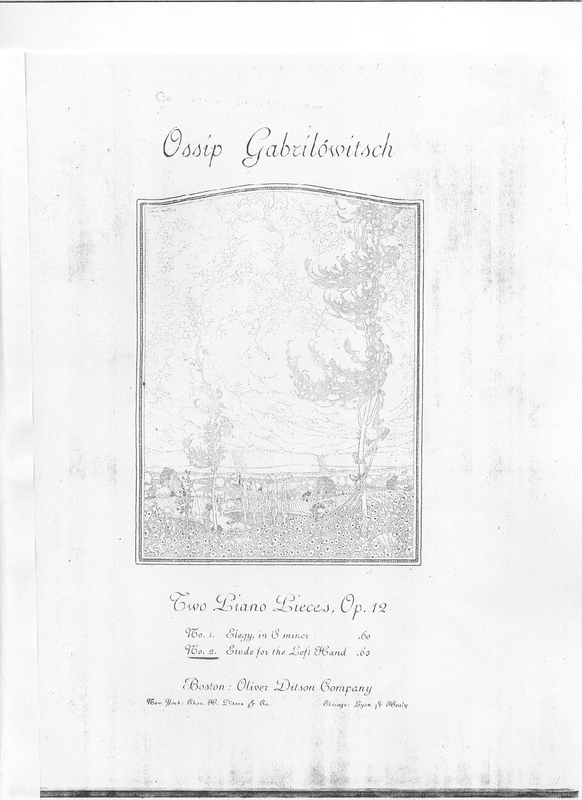 Ossip Gabrilówitsch
Two Piano Pieces, Op. 12
No. 1. Elegy, in C minor .60
No. 2. Etude for the Left Hand .60
Boston: Oliver Ditson Company
New York: Chas. H. Ditson & Co. Chicago: Lyon & Healy